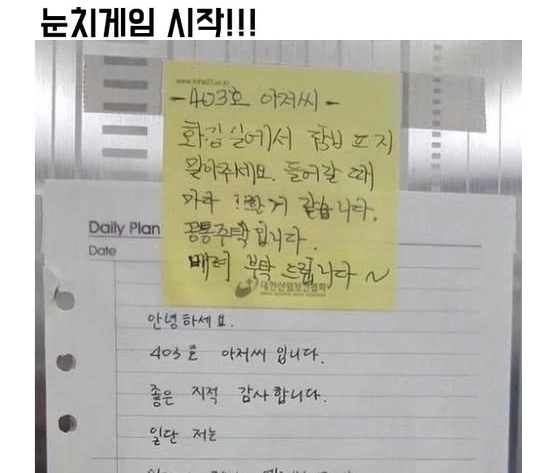 눈치게임 시작!!!
www.kiha21.or.kr
-403호 아저씨-
화장실에서 담배 피지
말아주세요. 들어갈 때
마다 같습니다.
공통주택입니다.
배려 부탁 드립니다~
대한산업보건협회
Daily Plan
Date
안녕하세요.
403호 아저씨 입니다.
좋은 지적 감사합니다.
일단 저는